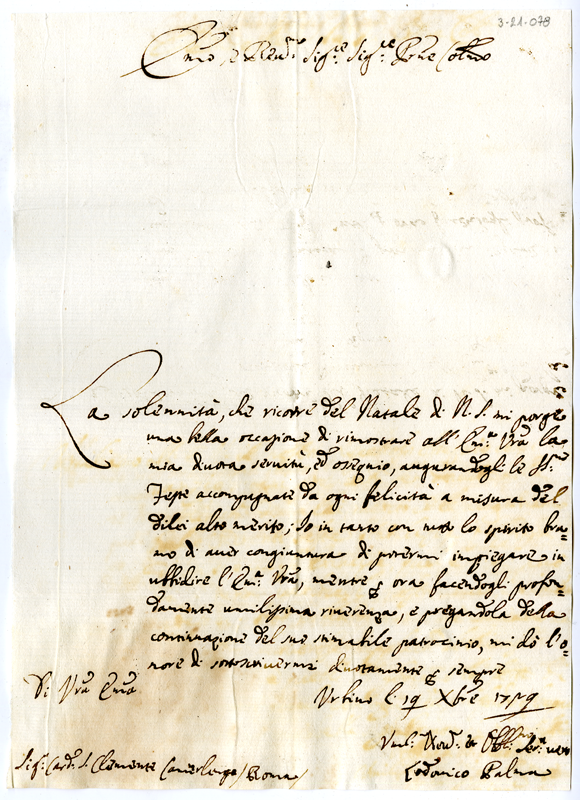 3-21-078
Emo e Revd.mo Sig.re Sig.re Prne Colmo
La solennità, che ricorre del Natale di N. S. mi porge
una bella occazione di rimostrare all' Em.a Vrã la
mia divota servitù, ed ossequio, augurandogli le SS.e
Feste accompagnate da ogni felicità a misura del
dilei alto merito; Io in tanto con tutto lo spirito bra=
mo di aver congiuntura di potermi impiegare in
ubbidire l'Em.a Vrã, mentre p ora facendogli profon=
damente umilissima riverenza, e pregandola della
continuazione del suo stimabile patrocinio, mi dò l'o=
nore di sottoscrivermi divotamente p sempre
Di Vrã Emã
Urbino li 19 Xbre 1759
Uml. Devd. et Obbl. Ser.e vero
Sig. Card. S. Clemente Camerlengo / Roma /
Lodovico Palma